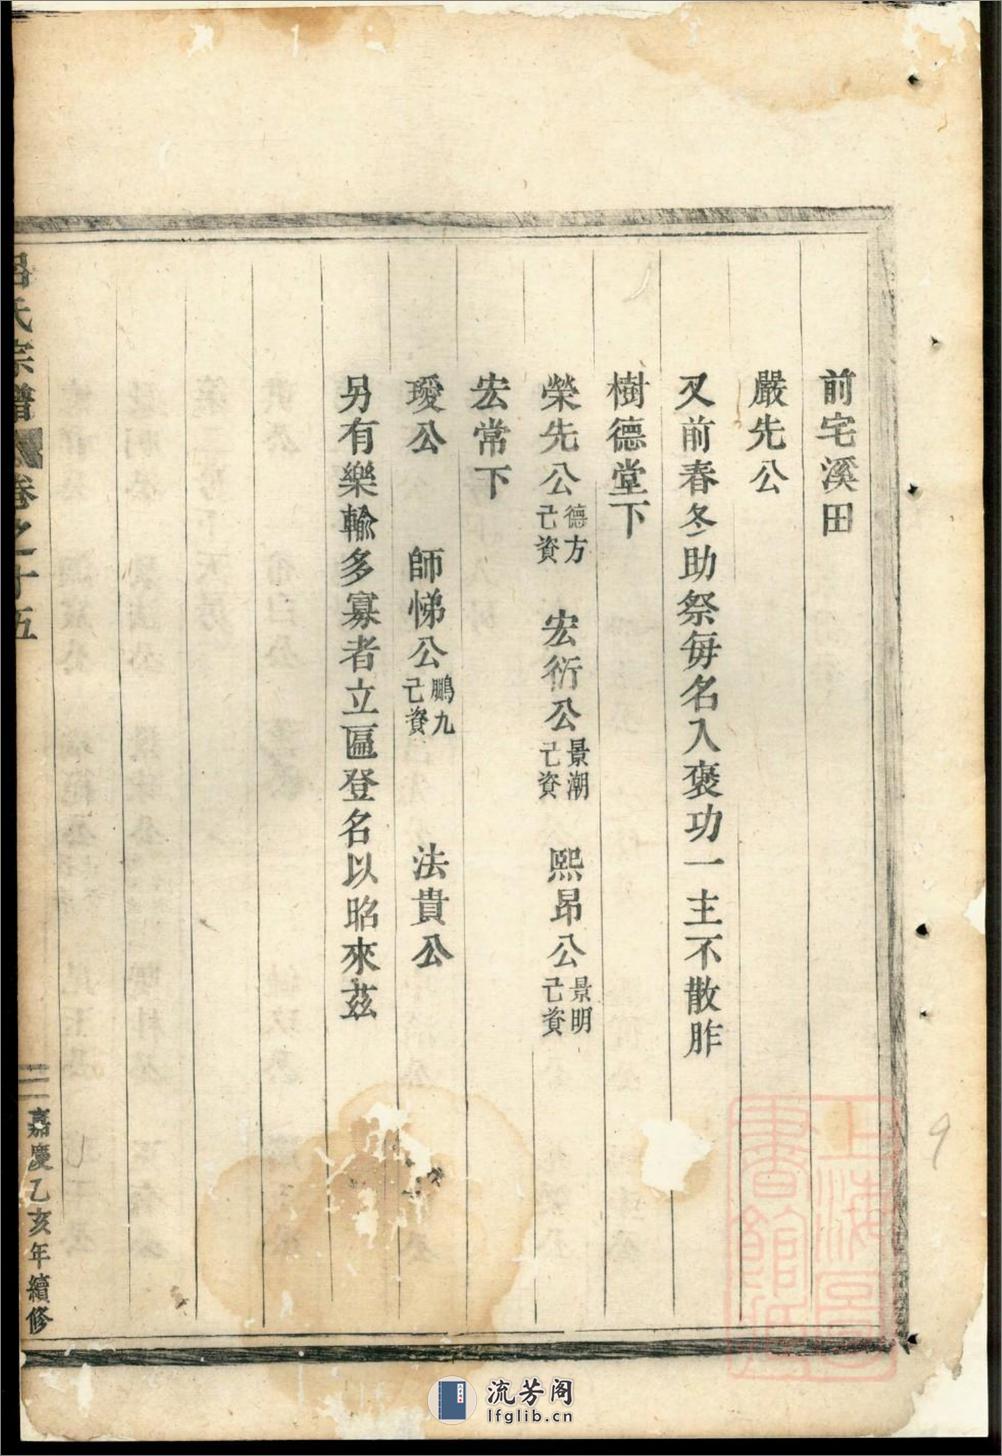 前宅溪田
嚴先公
又前春冬助祭每名入褒功一主不散胙
樹德堂下
榮先公德方己資 宏衍公景潮己資 熙昂公景明己資
宏常下
璦公 師悌公鵬九己資 法貴公
另有樂輸多寡者立匾登名以昭來茲
呂氏宗譜 卷之十五 嘉慶乙亥年續修
上海圖書館藏
9
流芳阁
lfglib.cn